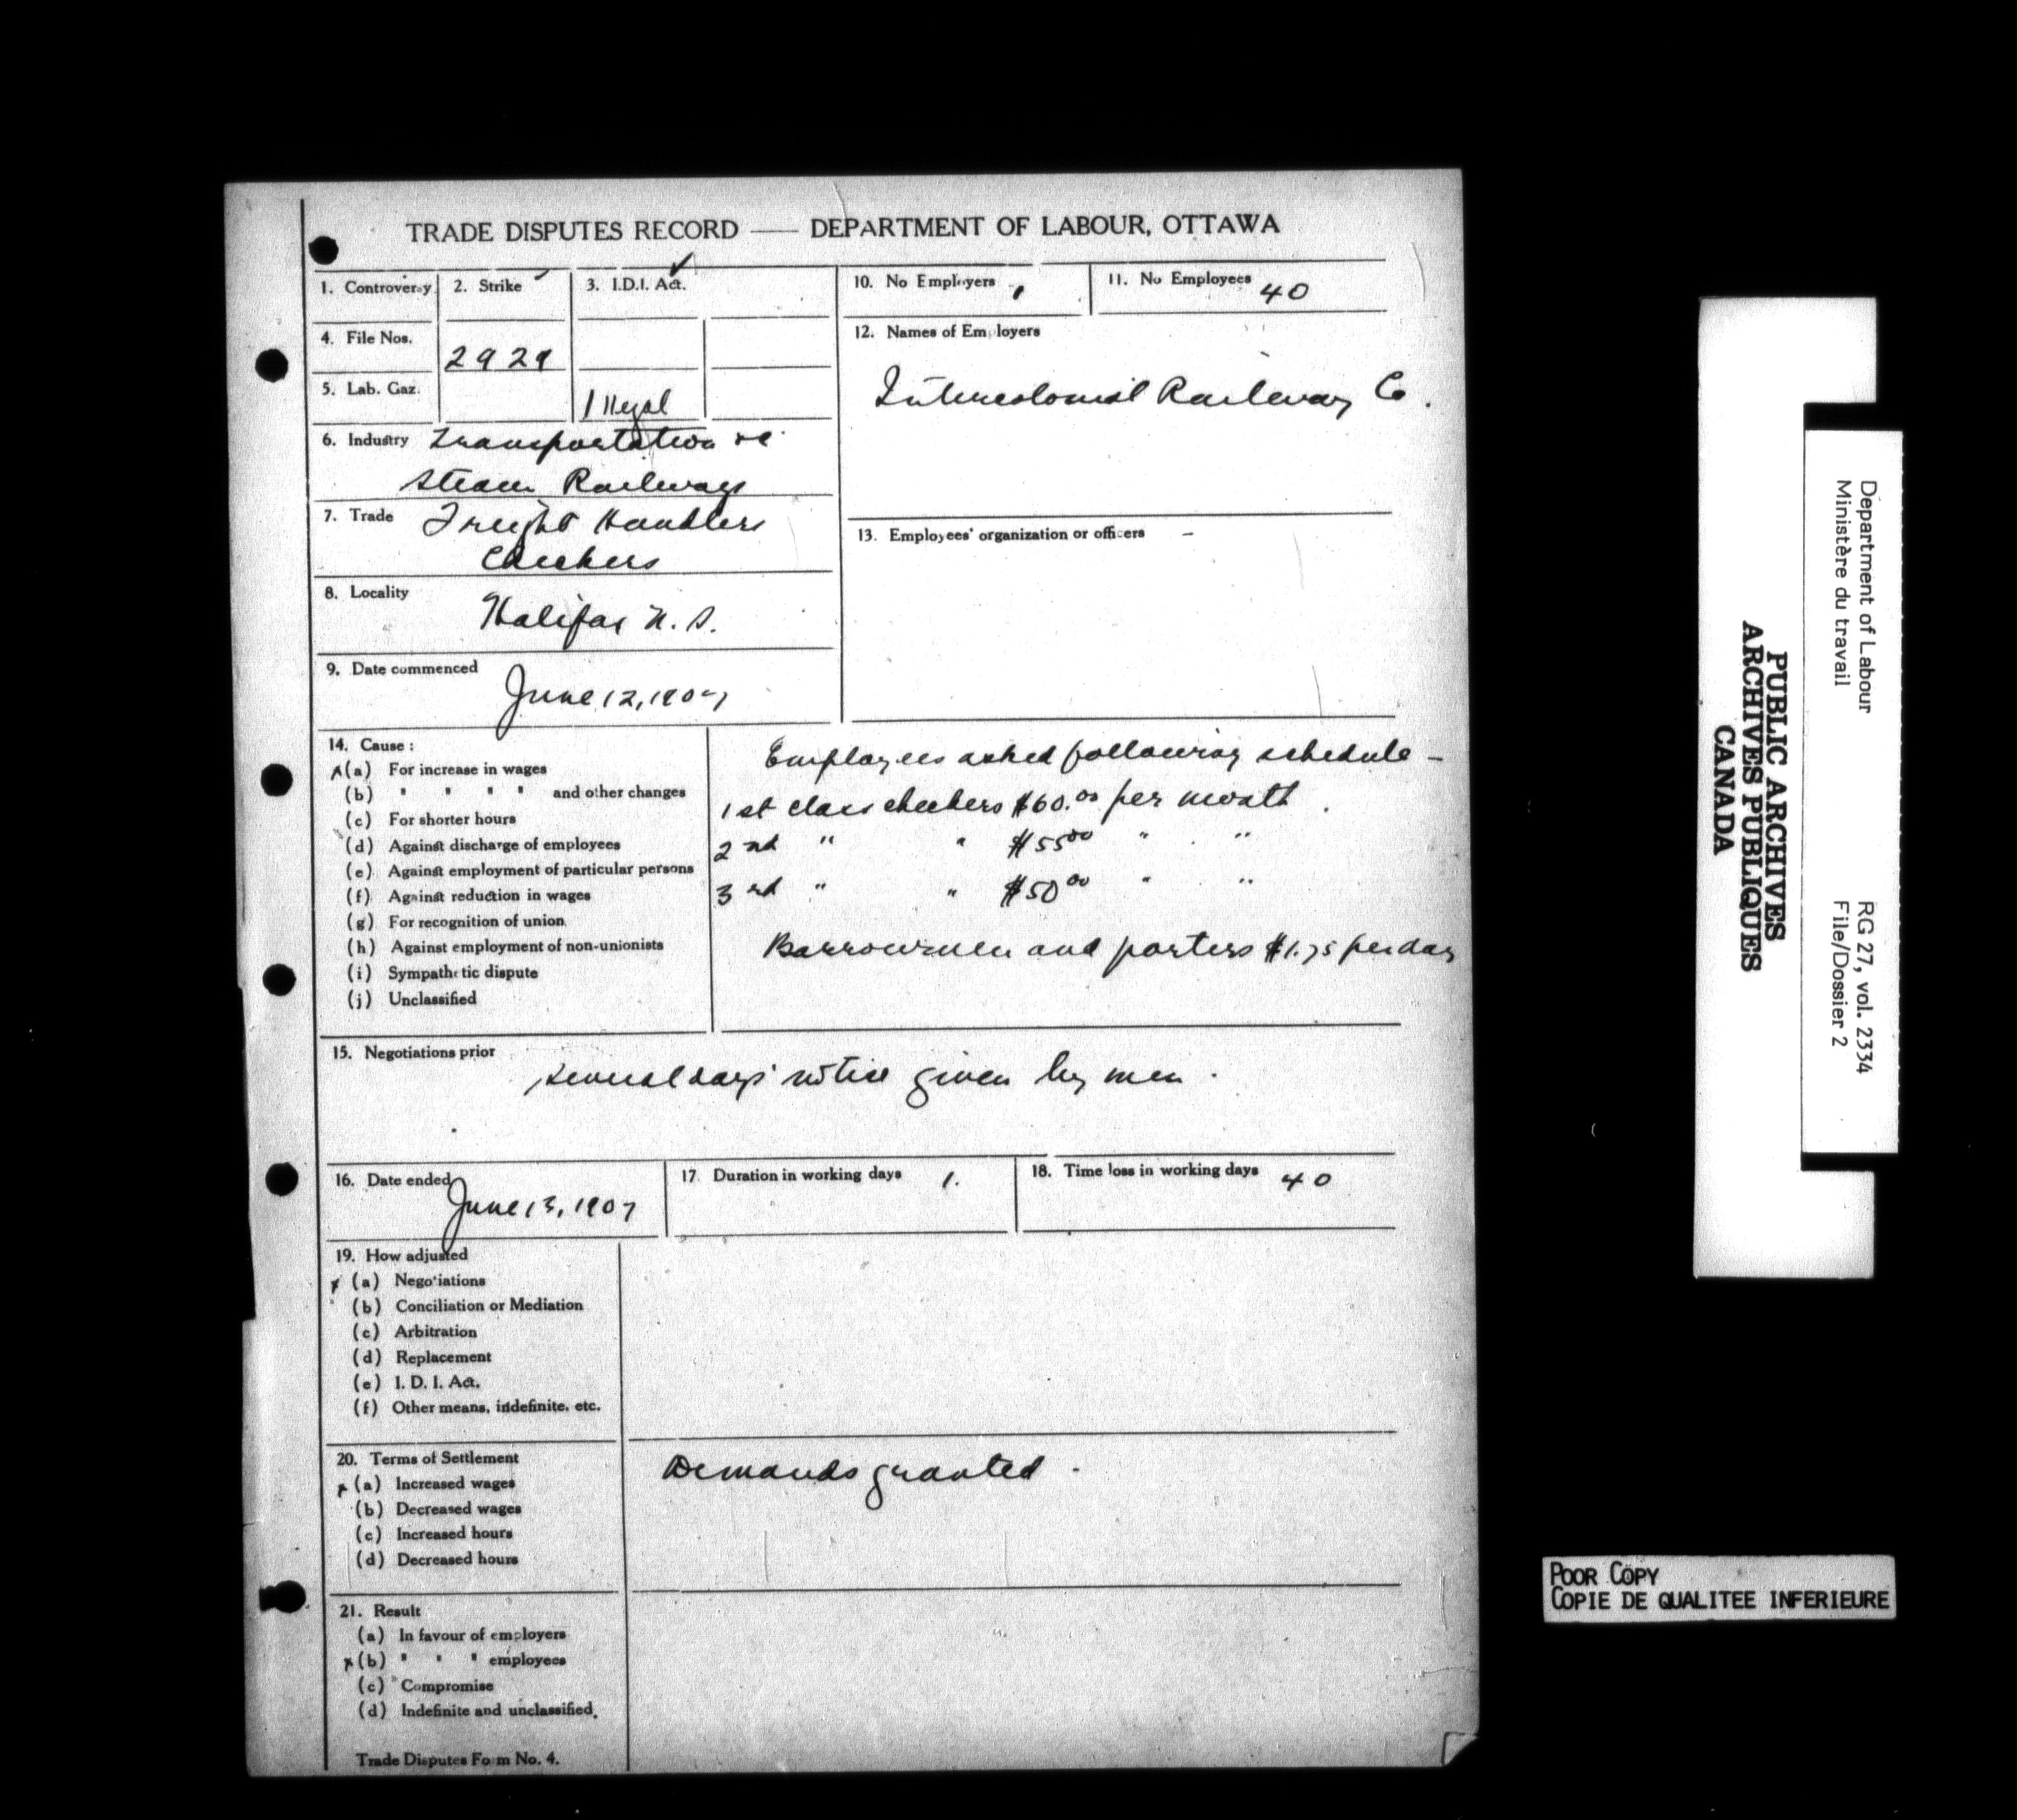 TRADE DISPUTES RECORD —— DEPARTMENT OF LABOUR, OTTAWA
1. Controversy
2. Strike
3. I.D.I. Act. ✓
10. No Employers 1
11. No Employees 40
4. File Nos.
2929
5. Lab. Gaz.
Illegal
12. Names of Employers
Intercolonial Railway Co.
6. Industry Transportation re
Steam Railways
7. Trade Freight Handlers
Checkers
13. Employees' organization or officers –
8. Locality
Halifax N.S.
9. Date commenced
June 12, 1907
14. Cause :
x (a) For increase in wages
(b) " " " " and other changes
(c) For shorter hours
(d) Against discharge of employees
(e) Against employment of particular persons
(f) Against reduction in wages
(g) For recognition of union
(h) Against employment of non-unionists
(i) Sympathetic dispute
(j) Unclassified
Employees asked following schedule –
1st class checkers $60.00 per month.
2nd " " $55.00 " "
3rd " " $50.00 " "
Barrowmen and porters $1.75 per day
15. Negotiations prior
several days' notice given by men.
16. Date ended
June 13, 1907
17. Duration in working days 1.
18. Time loss in working days 40
19. How adjusted
x (a) Negotiations
(b) Conciliation or Mediation
(c) Arbitration
(d) Replacement
(e) I. D. I. Act.
(f) Other means, indefinite, etc.
20. Terms of Settlement
x (a) Increased wages
(b) Decreased wages
(c) Increased hours
(d) Decreased hours
Demands granted.
21. Result
(a) In favour of employers
x (b) " " " employees
(c) Compromise
(d) Indefinite and unclassified.
Trade Disputes Form No. 4.
Department of Labour
Ministère du travail
RG 27, vol. 2334
File/Dossier 2
PUBLIC ARCHIVES
ARCHIVES PUBLIQUES
CANADA
POOR COPY
COPIE DE QUALITEE INFERIEURE